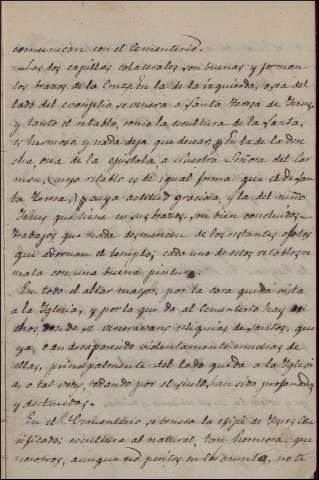 comunican con el Cementerio.
Las dos capillas colaterales son buenas y forman
los brazos de la Cruz. En la de la izquierda, o sea del
lado del evangelio se venera a Santa Teresa de Jesus,
y tanto el retablo, como la escultura de la Santa,
es hermoso y nada deja que desear. En la de la dere
cha, o sea de la epistola, a Nuestra Señora del Car
men, (cuyo retablo es de igual forma que el de San
ta Teresa,) y cuya actitud graciosa, y la del niño
Jesus que tiene en sus brazos, son bien concluidos
trabajos que nada desmerecen de los restantes
que adornan el templo; cada uno de estos retablos re
mata con una buena pintura.
En todo el altar mayor, por la cara que da vista
a la Iglesia, y por la que da al Cementerio hay ni
chos donde se reliquias de Santos, que
ya, han desaparecido violentamente muchas de
ellas, principalmente del lado que da a la Igle
sia, o tal vez, rodando por el suelo, han sido profanadas
y destruidas.
En el Cementerio se venera la efigie de Jesus Cru
cificado; escultura al natural, tan hermosa, que
nosotros, aunque no peritos en la, no te